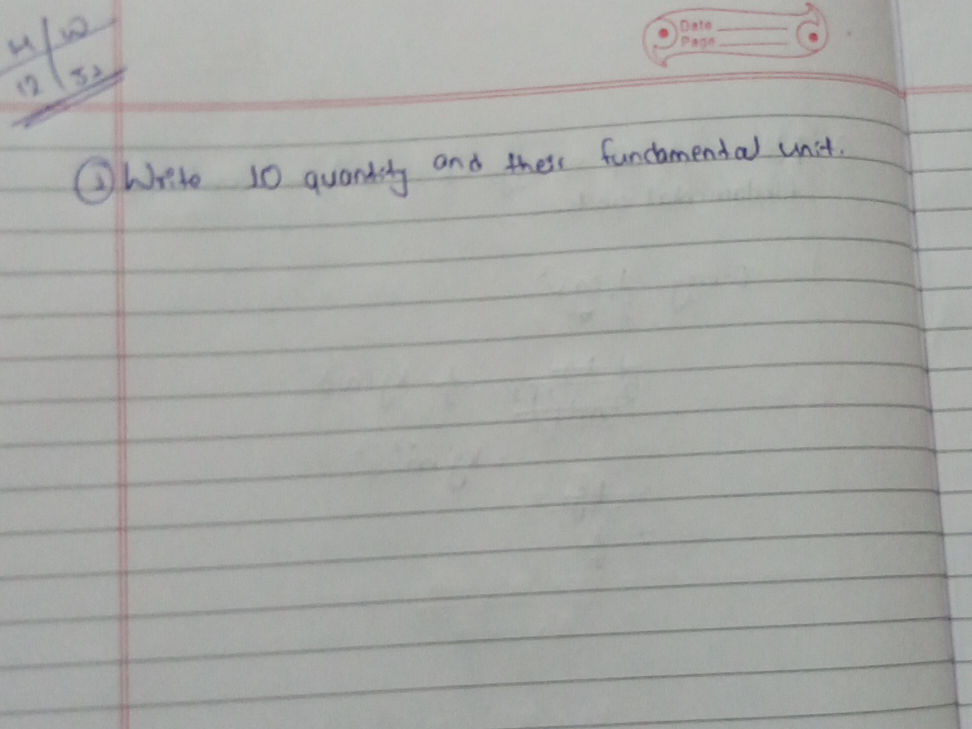 H/W
Date
Page
① Write 10 quantity and their fundamental unit.